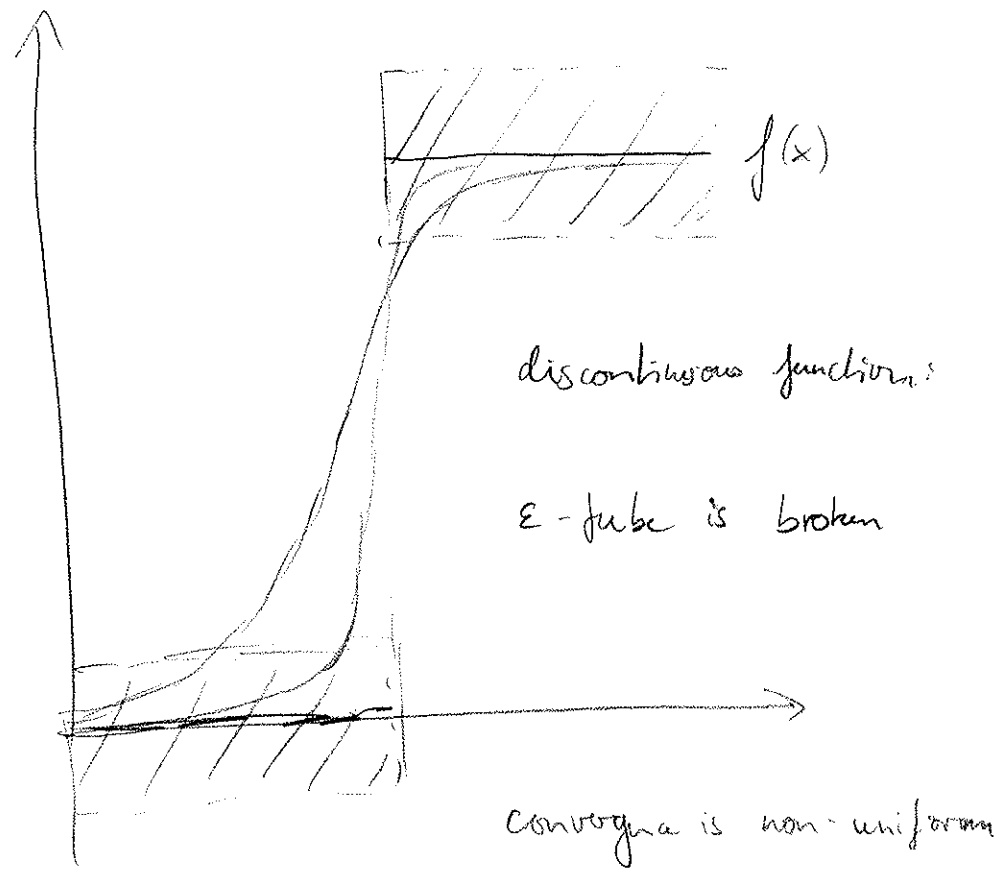 f(x)
discontinuous function:
ε-tube is broken
convergna is non-uniform